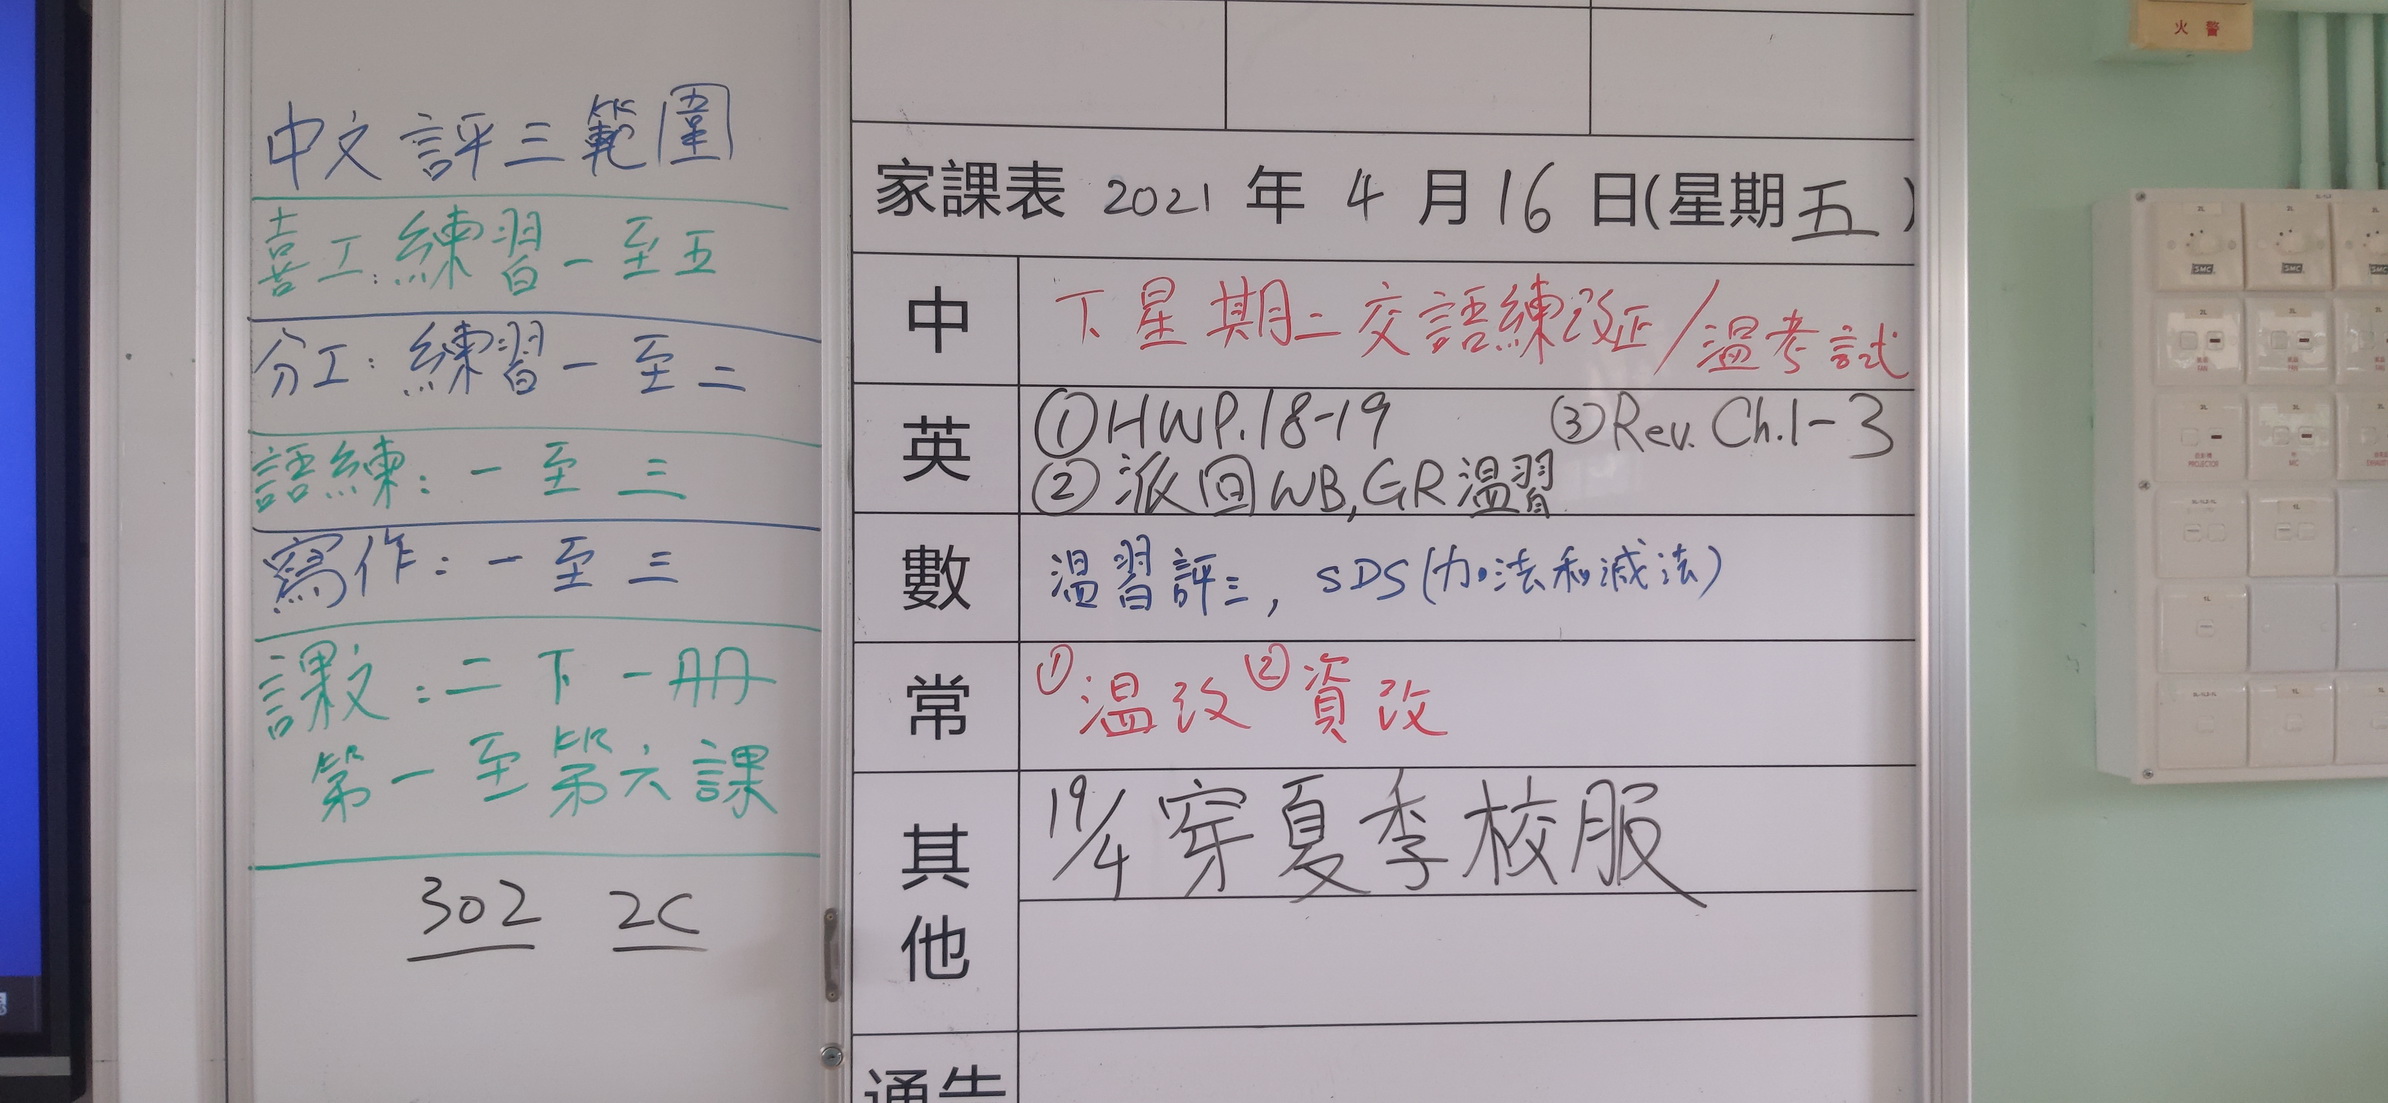 中文評三範圍
喜工:練習一至五
分工:練習一至二
語練:一至三
寫作:一至三
課文:二下一册
第一至第六課
302 2C
家課表 2021 年 4 月 16 日(星期五)
中 下星期二交語練改正/溫考試
英 ①HWP.18-19 ③Rev. Ch.1-3
②派回WB,GR溫習
數 溫習評三, SDS(加法和減法)
常 ①溫改②資改
其他 19/4 穿夏季校服
通告
火警